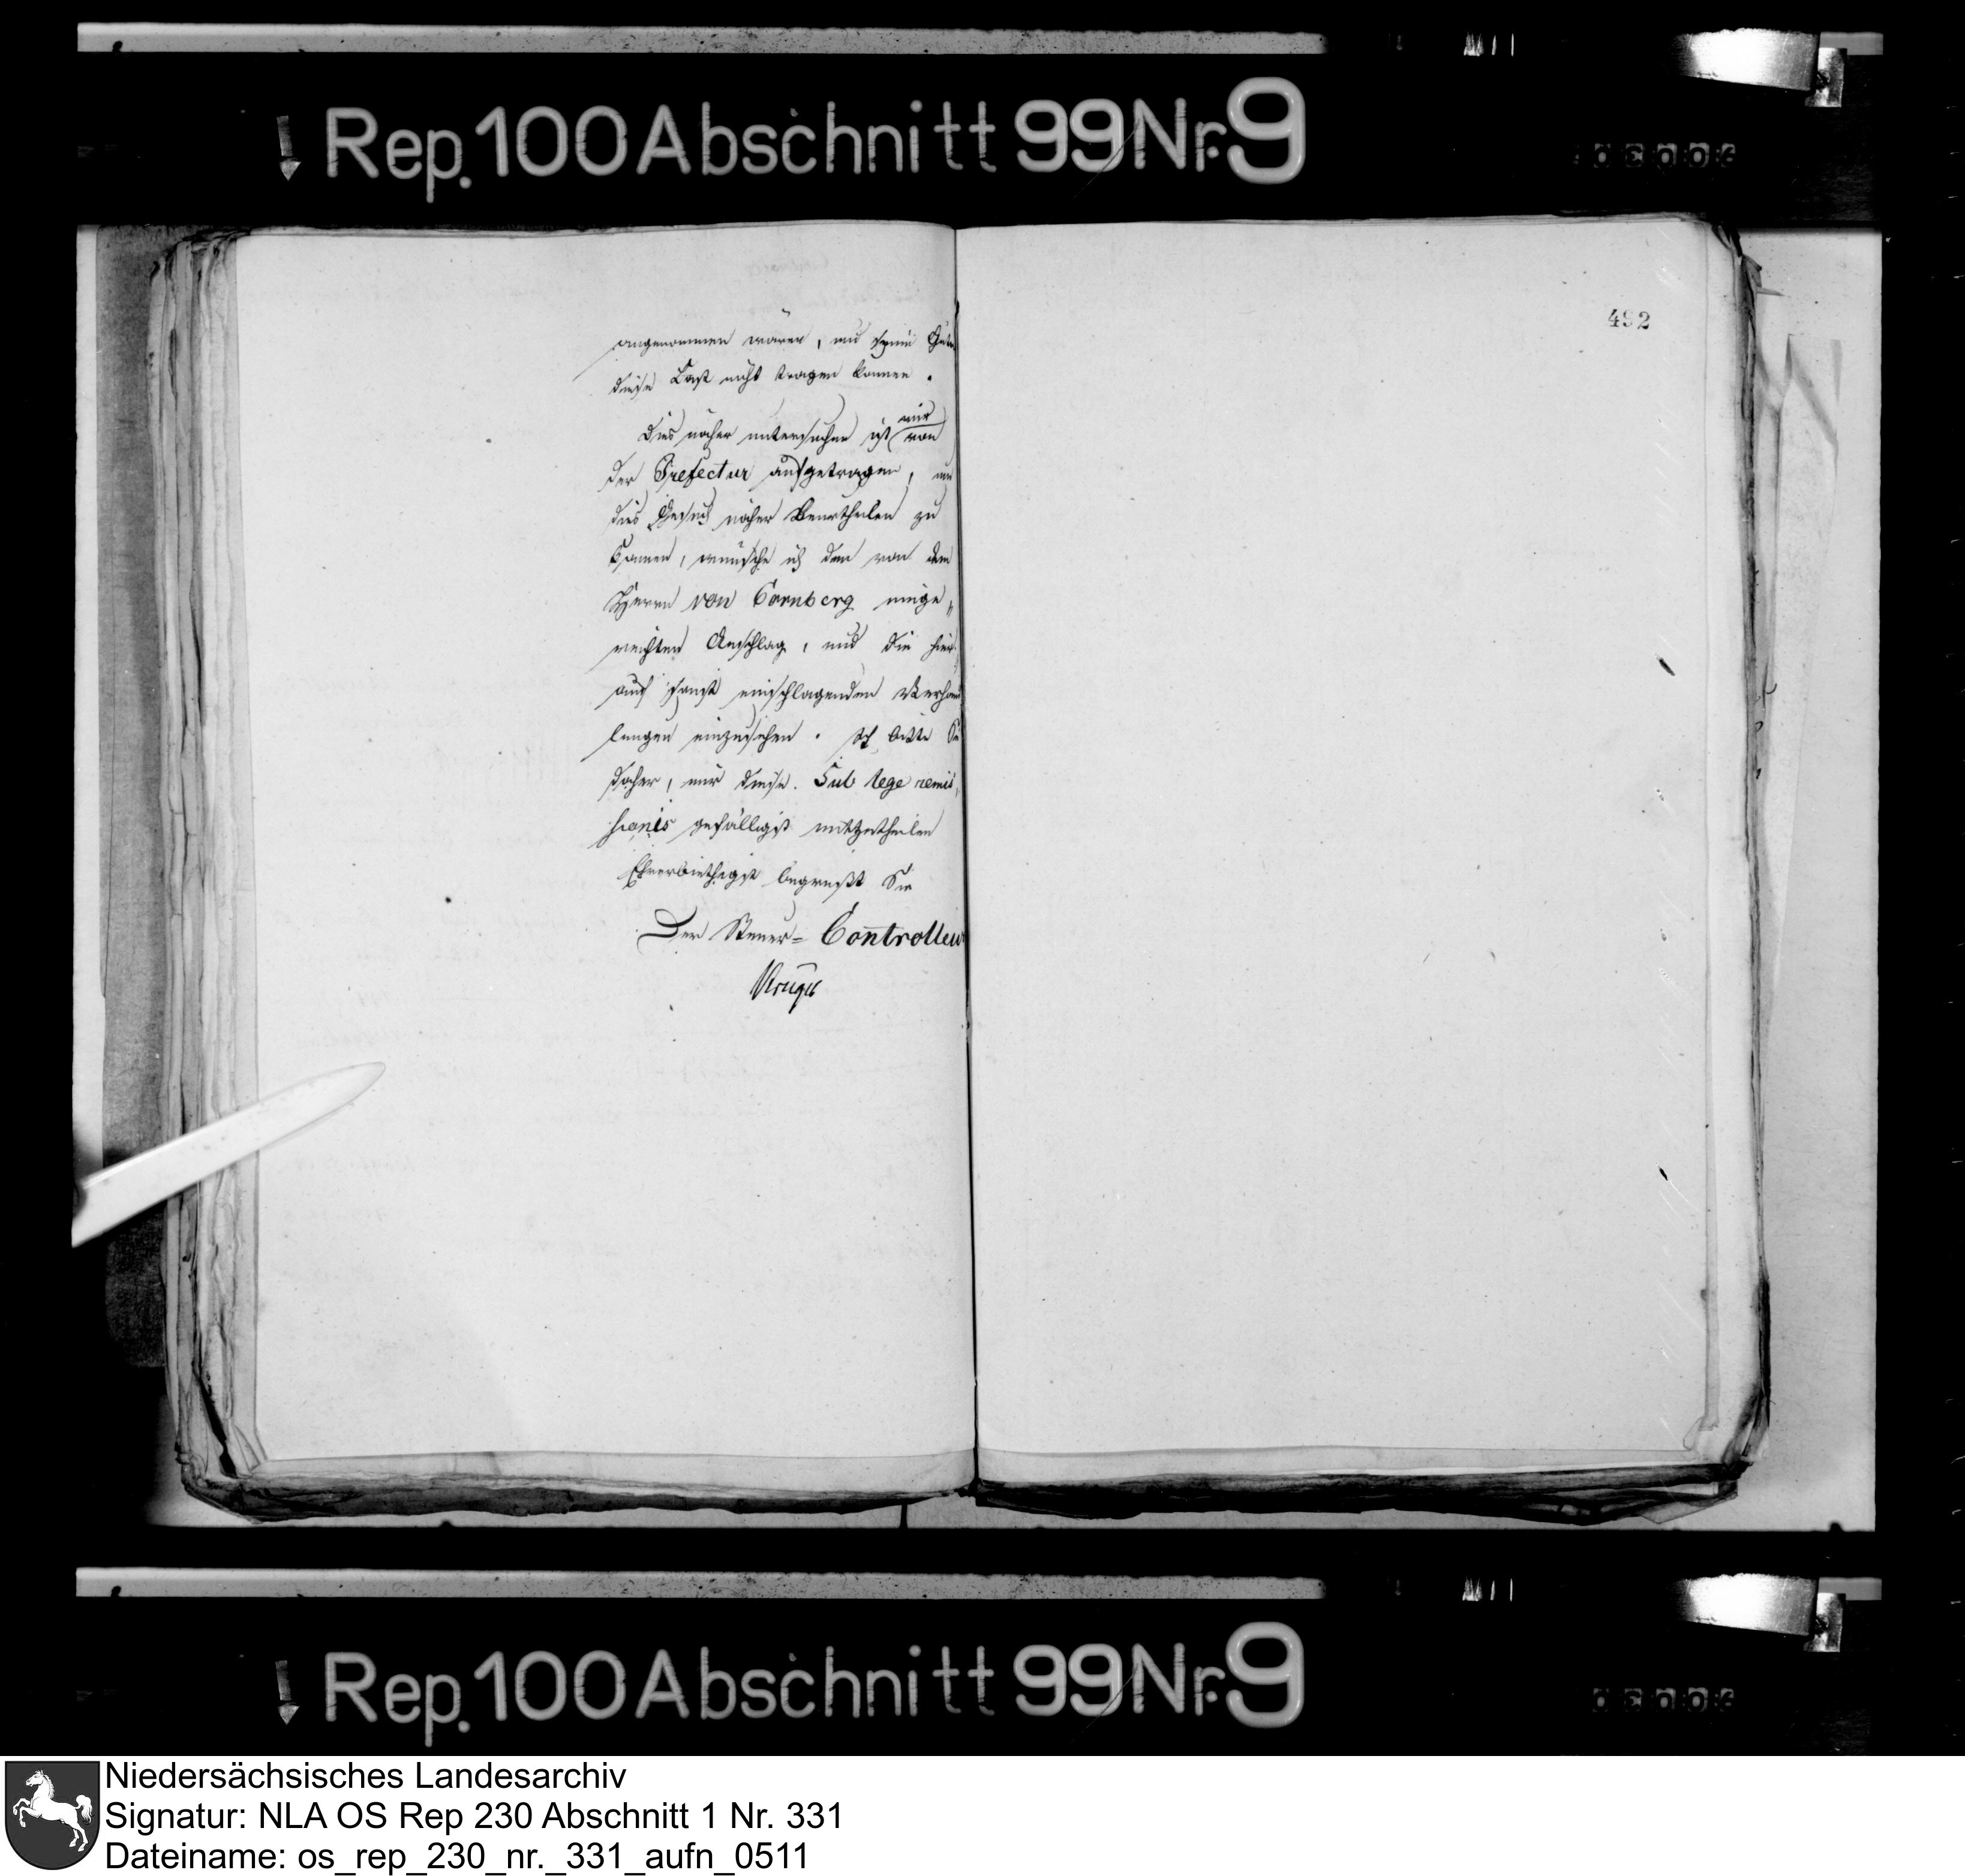 Rep. 100 Abschnitt 99 Nr. 9
492
angenommen wären, und seine Güter
diese Last nicht tragen können.
mir
Dies näher untersuchen ist von
der Prefectur aufgetragen, um
dies Gesuch näher Beurtheilen zu
können, wünsche ich den von dem
Herrn von Cornberg einge„
reichten Anschlag, und die hier
auf sonst einschlagenden Verhand
lungen einzusehen. Ich bitte Sie
daher, mir diese. Sub lege remis„
sionis gefälligst mitzutheilen
Ehrerbiethigst begrüßt Sie
Der Steuer= Controlleur
Kruge
Rep. 100 Abschnitt 99 Nr. 9
Niedersächsisches Landesarchiv
Signatur: NLA OS Rep 230 Abschnitt 1 Nr. 331
Dateiname: os_rep_230_nr._331_aufn_0511